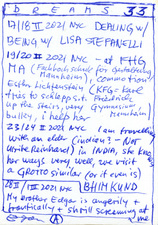 DREAMS 33
17/18 II 2021 NYC DEALING W/
BEING W/ LISA STEFANELLI
19/20 II 2021 NYC – at FHG
MA (Fachhochschule für Gestaltung
Mannheim), commotion
Esther Lichtenstein (KFG = Karl
tries to schlepp st. Friedrich
up the stairs, very Gymnasium
bulky, i help her Mannheim
23/24 II 2021 NYC i am travelling
with an elder (indian? – Not
Ute Reinhard) in INDIA, she knows
her ways very well, we visit
a GROTTO similar (or if even is)
28 II / 1 III 2021 NYC BHIMKUND
My brother Edgar is angrily +
frantically + shrill screaming at me
Egon A